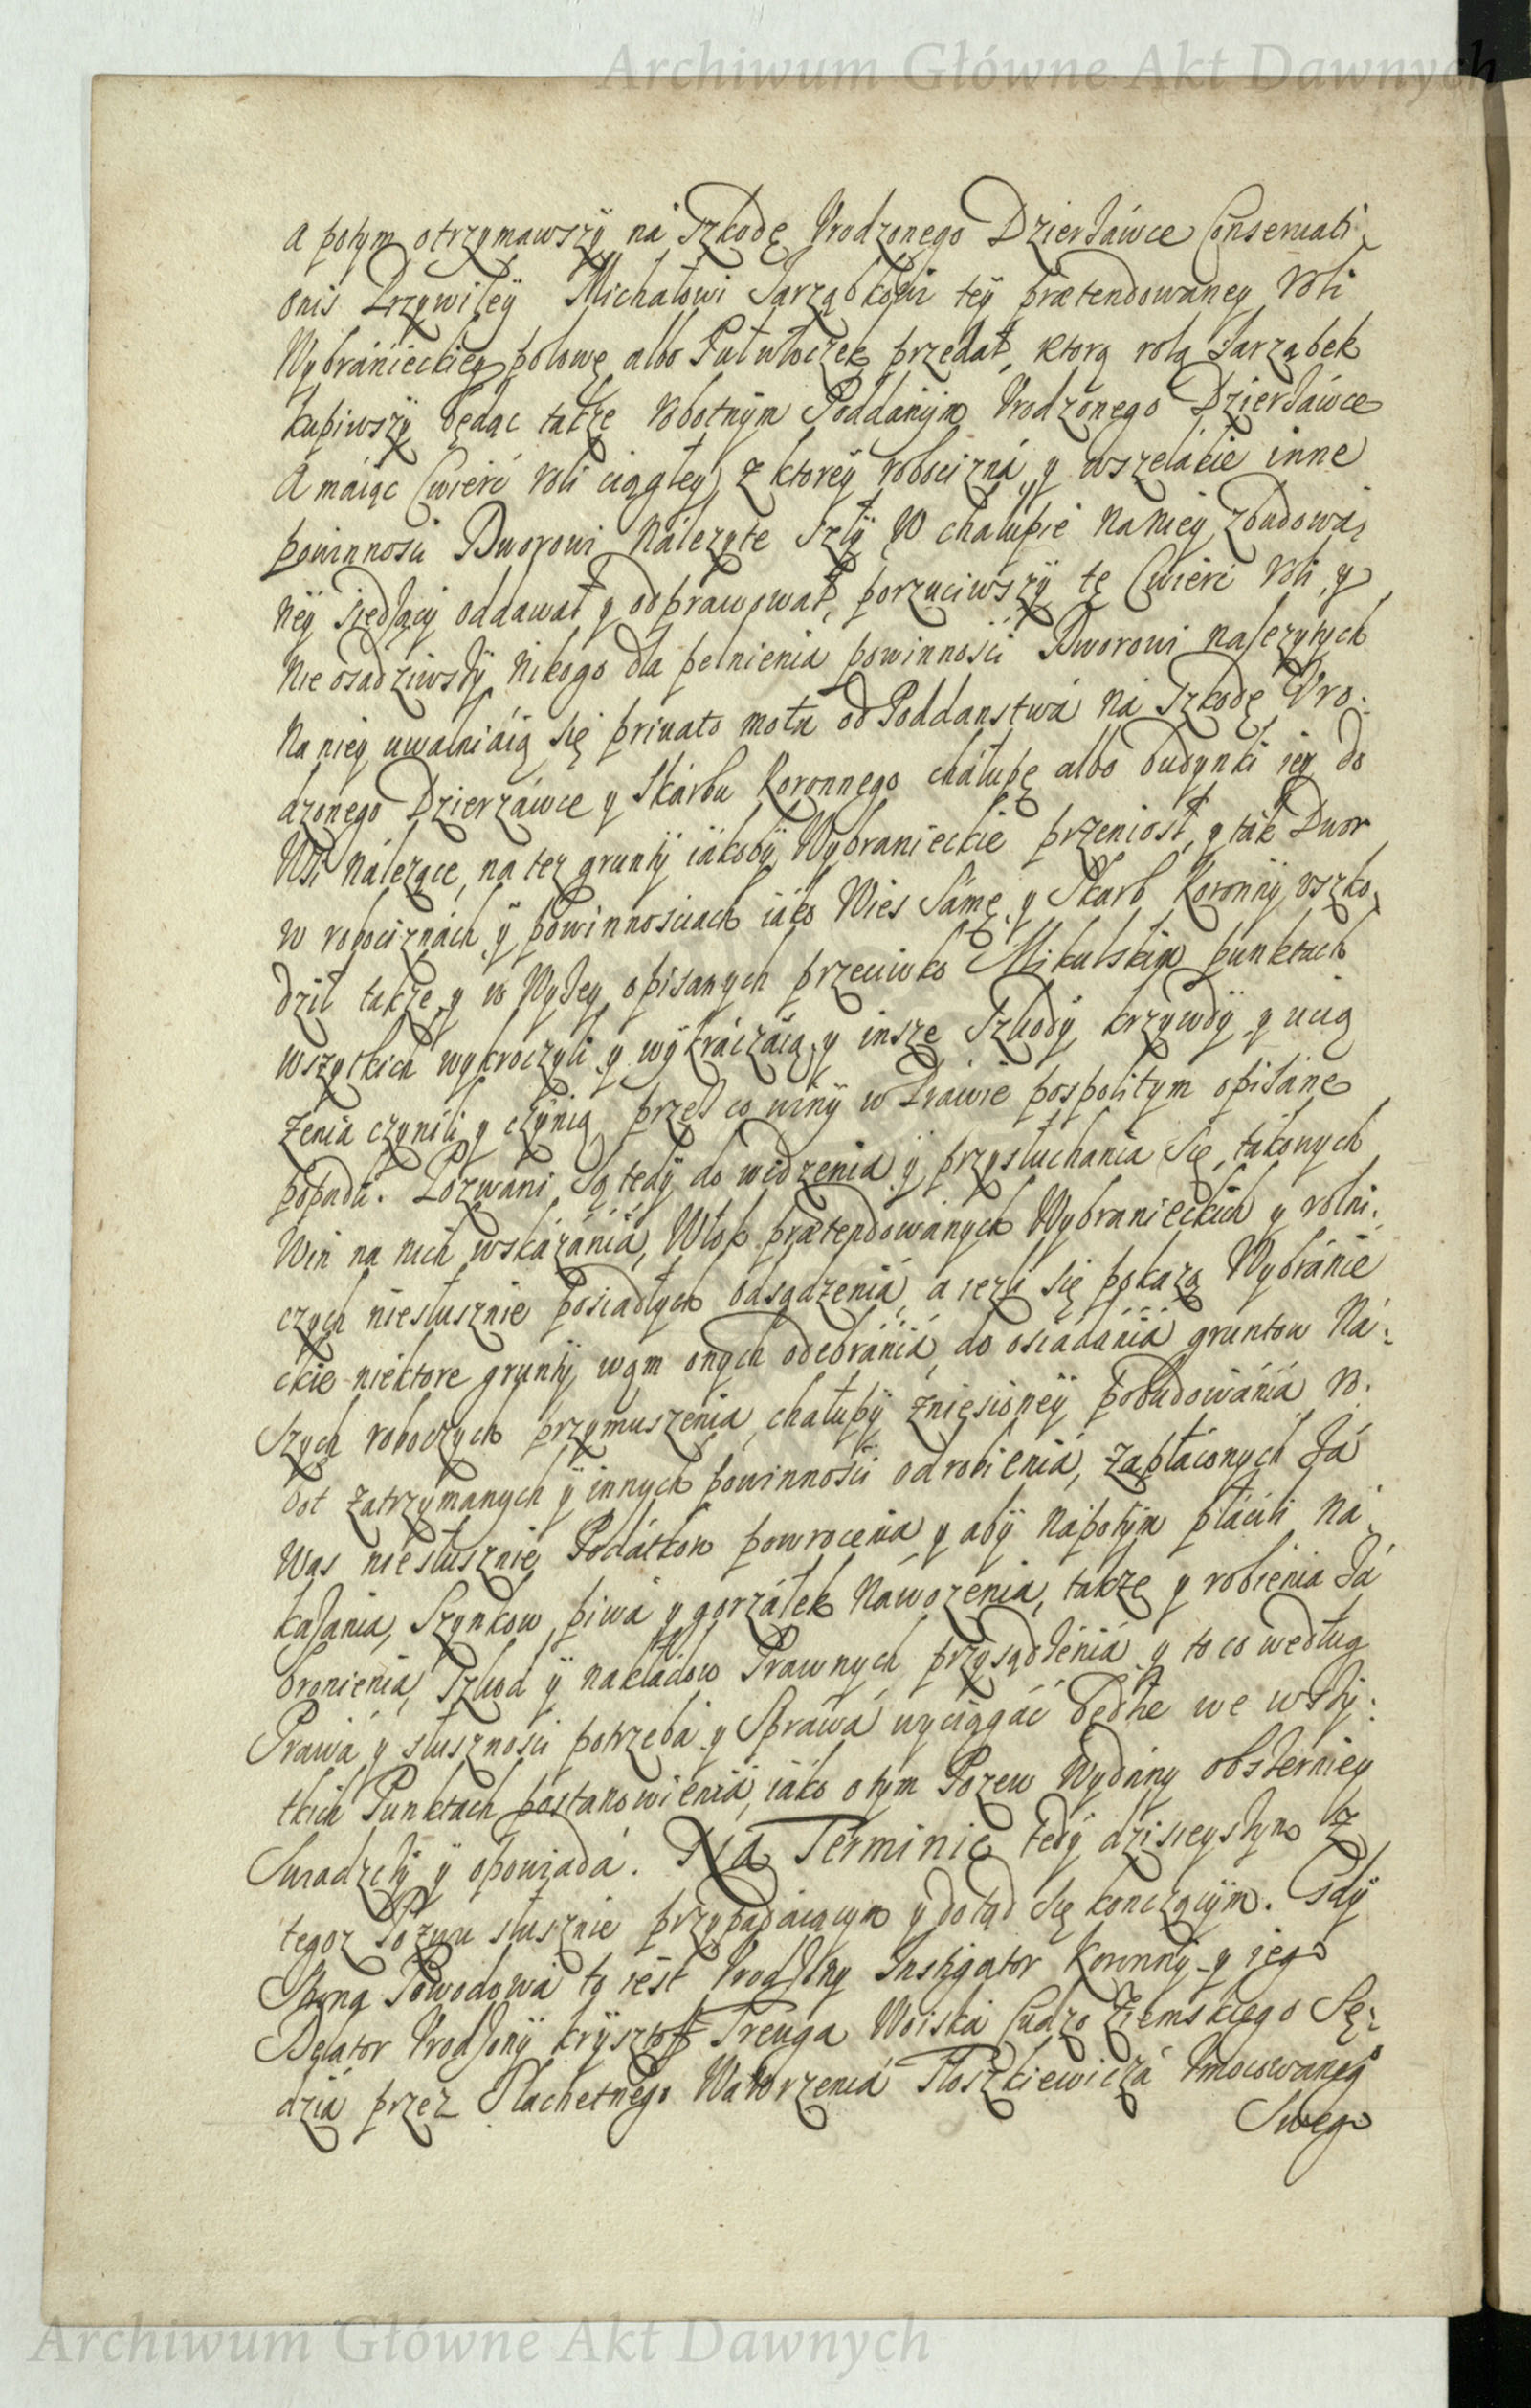 Archiwum Główne Akt Dawnych
a potym otrzymawszÿ ná szkodę Vrodzonego Dzierżáwce Conseruati
onis Przywileÿ Michałowi Jarząbkowi teÿ prætendowaney Roli
Wybránieckiey połowę albo Pułwłoczek przedał, ktorą rolą Jarząbek
kupiwszÿ będąc także robotnÿm Poddanÿm Vrodzonego Dzierżáwce
A máiąc Cwierć Roli ciągłey z ktoreÿ robocizná y wszelákie inne
powinnosci Dworowi Náleżyte szłÿ W chałupie na niey zbudowá,
neÿ siedzący oddawał y odprawował, porzuciwszÿ tę Cwierć Roli y
nie osadziwszÿ nikogo dla pełnienia powinności Dworowi należytych
na niey uwalniáią się priuato motu od Poddanstwá ná szkodę Vro:
dzonego Dzierżáwce y Skárbu Koronnego cháłupę albo budynki iey do
Wsi Náleżące, na też gruntÿ iákobÿ Wybranieckie przeniosł, y ták Dwor
w robociznách ÿ powinnosciach iáko Wies sámę y Skarb Koronnÿ vszko,
dził także y w Wyżey opisanych przeciwko Mikulskim punktach
wszytkich wykroczyli y wÿkráczáią y insze szkodÿ krzywdÿ y ucią
żenia czynili y czÿnią przez co winÿ w Práwie pospolitym opisáne
popadli. Pozwáni są tedÿ do widzenia ÿ przysłuchania się takowych
Win na nich wskázánia, Włok prætendowánych Wybranieckich y rolni:
czych niesłusznie posiadłych odsądzenia, a iezli się pokażą Wybránie
ckie niektore gruntÿ wqm onych odebránia, do osiádania gruntow Ná:
szych roboczych przymuszenia, chałupÿ zniesioneÿ pobudowánia Ro:
bot zatrzymanych ÿ innych powinnosci odrobienia, zapłáconych Zá
Was niesłusznie Podátkow powrocenia y abÿ nápotÿm płácili Ná
kazania, Szynkow piwa y gorzáłek Náwożenia, także y robienia Zá
bronienia, szkod ÿ nakładow Prawnych przysądzenia y to co według
Práwá y słusznosci potrzeba y Spráwá wyciągáć będzie we wszÿ:
tkich Punktach postanowienia, iáko o tym Pozew Wydány obszerniey
Swiadczÿ ÿ opowiada. Ná Terminie tedÿ dzisieyszÿm Z
tegoż Pozwu słusznie przypadáiącym y dotąd się konczącÿm. Gdÿ
Strona Powodowa to iest Vrodzony Instygator Koronny y iego
Delator Vrodzonÿ Krysztoff Treuga Woiska Cudzo Ziemskiego Sę:
dzia przez Szlachetnego Wawrzenca Floszkiewicza Vmocowanego
Swego
Archiwum Główne Akt Dawnych